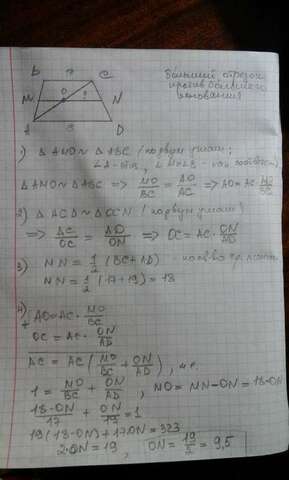 B 7 C
M O N
A 8 D
Больший отрезок
против большего
основания
1) △AMO ~ △ABC (по двум углам;
∠A - общ,
△AMO ~ △ABC => MO/BC = AO/AC => AO = AC · MO/BC
2) △ACD ~ △OCN (по двум углам)
=> AC/OC = AD/ON => OC = AC · ON/AD
3) MN = 1/2 (BC + AD) -
MN = 1/2 (17 + 19) = 18
4) AO = AC · MO/BC
+
OC = AC · ON/AD
AC = AC (MO/BC + ON/AD),
1 = MO/BC + ON/AD, MO = MN - ON = 18 - ON
18-ON/17 + ON/19 = 1
19(18-ON) + 17·ON = 323
2·ON = 19, ON = 19/2 = 9,5